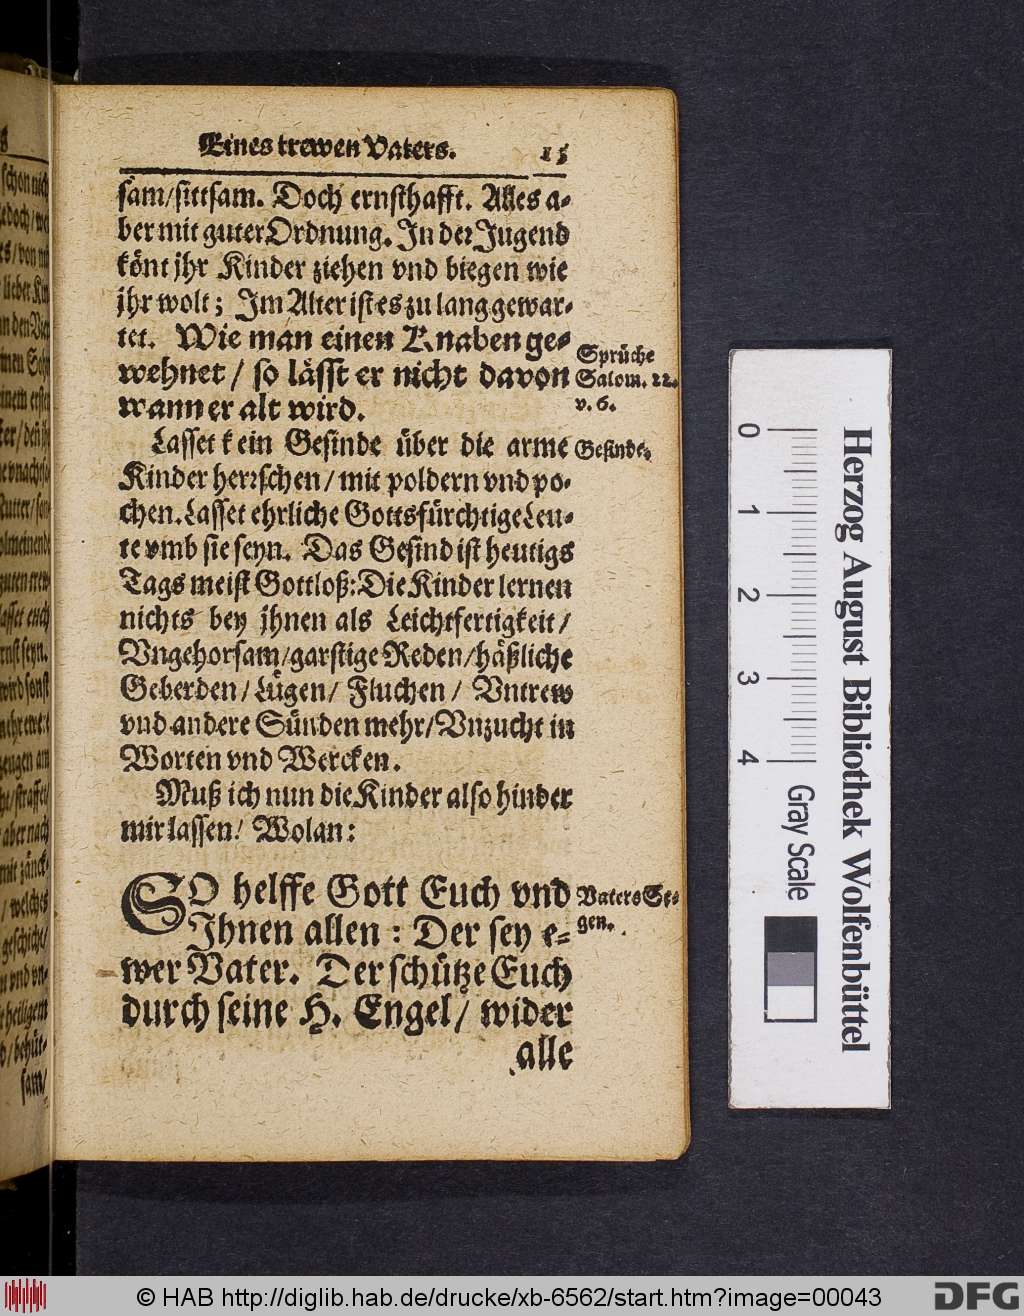 Eines trewen Vaters. 15
sam/sittsam. Doch ernsthafft. Alles a-
ber mit guter Ordnung. In der Jugend
könt jhr Kinder ziehen vnd biegen wie
jhr wolt; Im Alter ist es zu lang gewar-
tet. Wie man einen Knaben ge-
wehnet / so lässt er nicht davon
wann er alt wird.
Sprüche
Salom. 22.
v. 6.
Lasset kein Gesinde über die arme
Gesinde.
Kinder herrschen / mit poldern vnd po-
chen. Lasset ehrliche Gottsfürchtige Leu-
te vmb sie seyn. Das Gesind ist heutigs
Tags meist Gottloß: Die Kinder lernen
nichts bey jhnen als Leichtfertigkeit /
Vngehorsam/garstige Reden/häßliche
Geberden / Lügen / Fluchen / Vntrew
vnd andere Sünden mehr/Vnzucht in
Worten vnd Wercken.
Muß ich nun die Kinder also hinder
mir lassen! Wolan:
SO helffe Gott Euch vnd
Ihnen allen : Der sey e-
wer Vater. Der schütze Euch
durch seine H. Engel / wider
alle
Vaters Se-
gen.
schon nich
jedoch/we
lieber Kin
lasset euch
ernst seyn.
wird sonst
zeugen am
cht/straffet/
aber nach
mit zänck-
/ welches
geschicht/
n vnd vn-
t heiligem
d/behüt-
sam/
0 1 2 3 4
Gray Scale
Herzog August Bibliothek Wolfenbüttel
© HAB http://diglib.hab.de/drucke/xb-6562/start.htm?image=00043
DFG